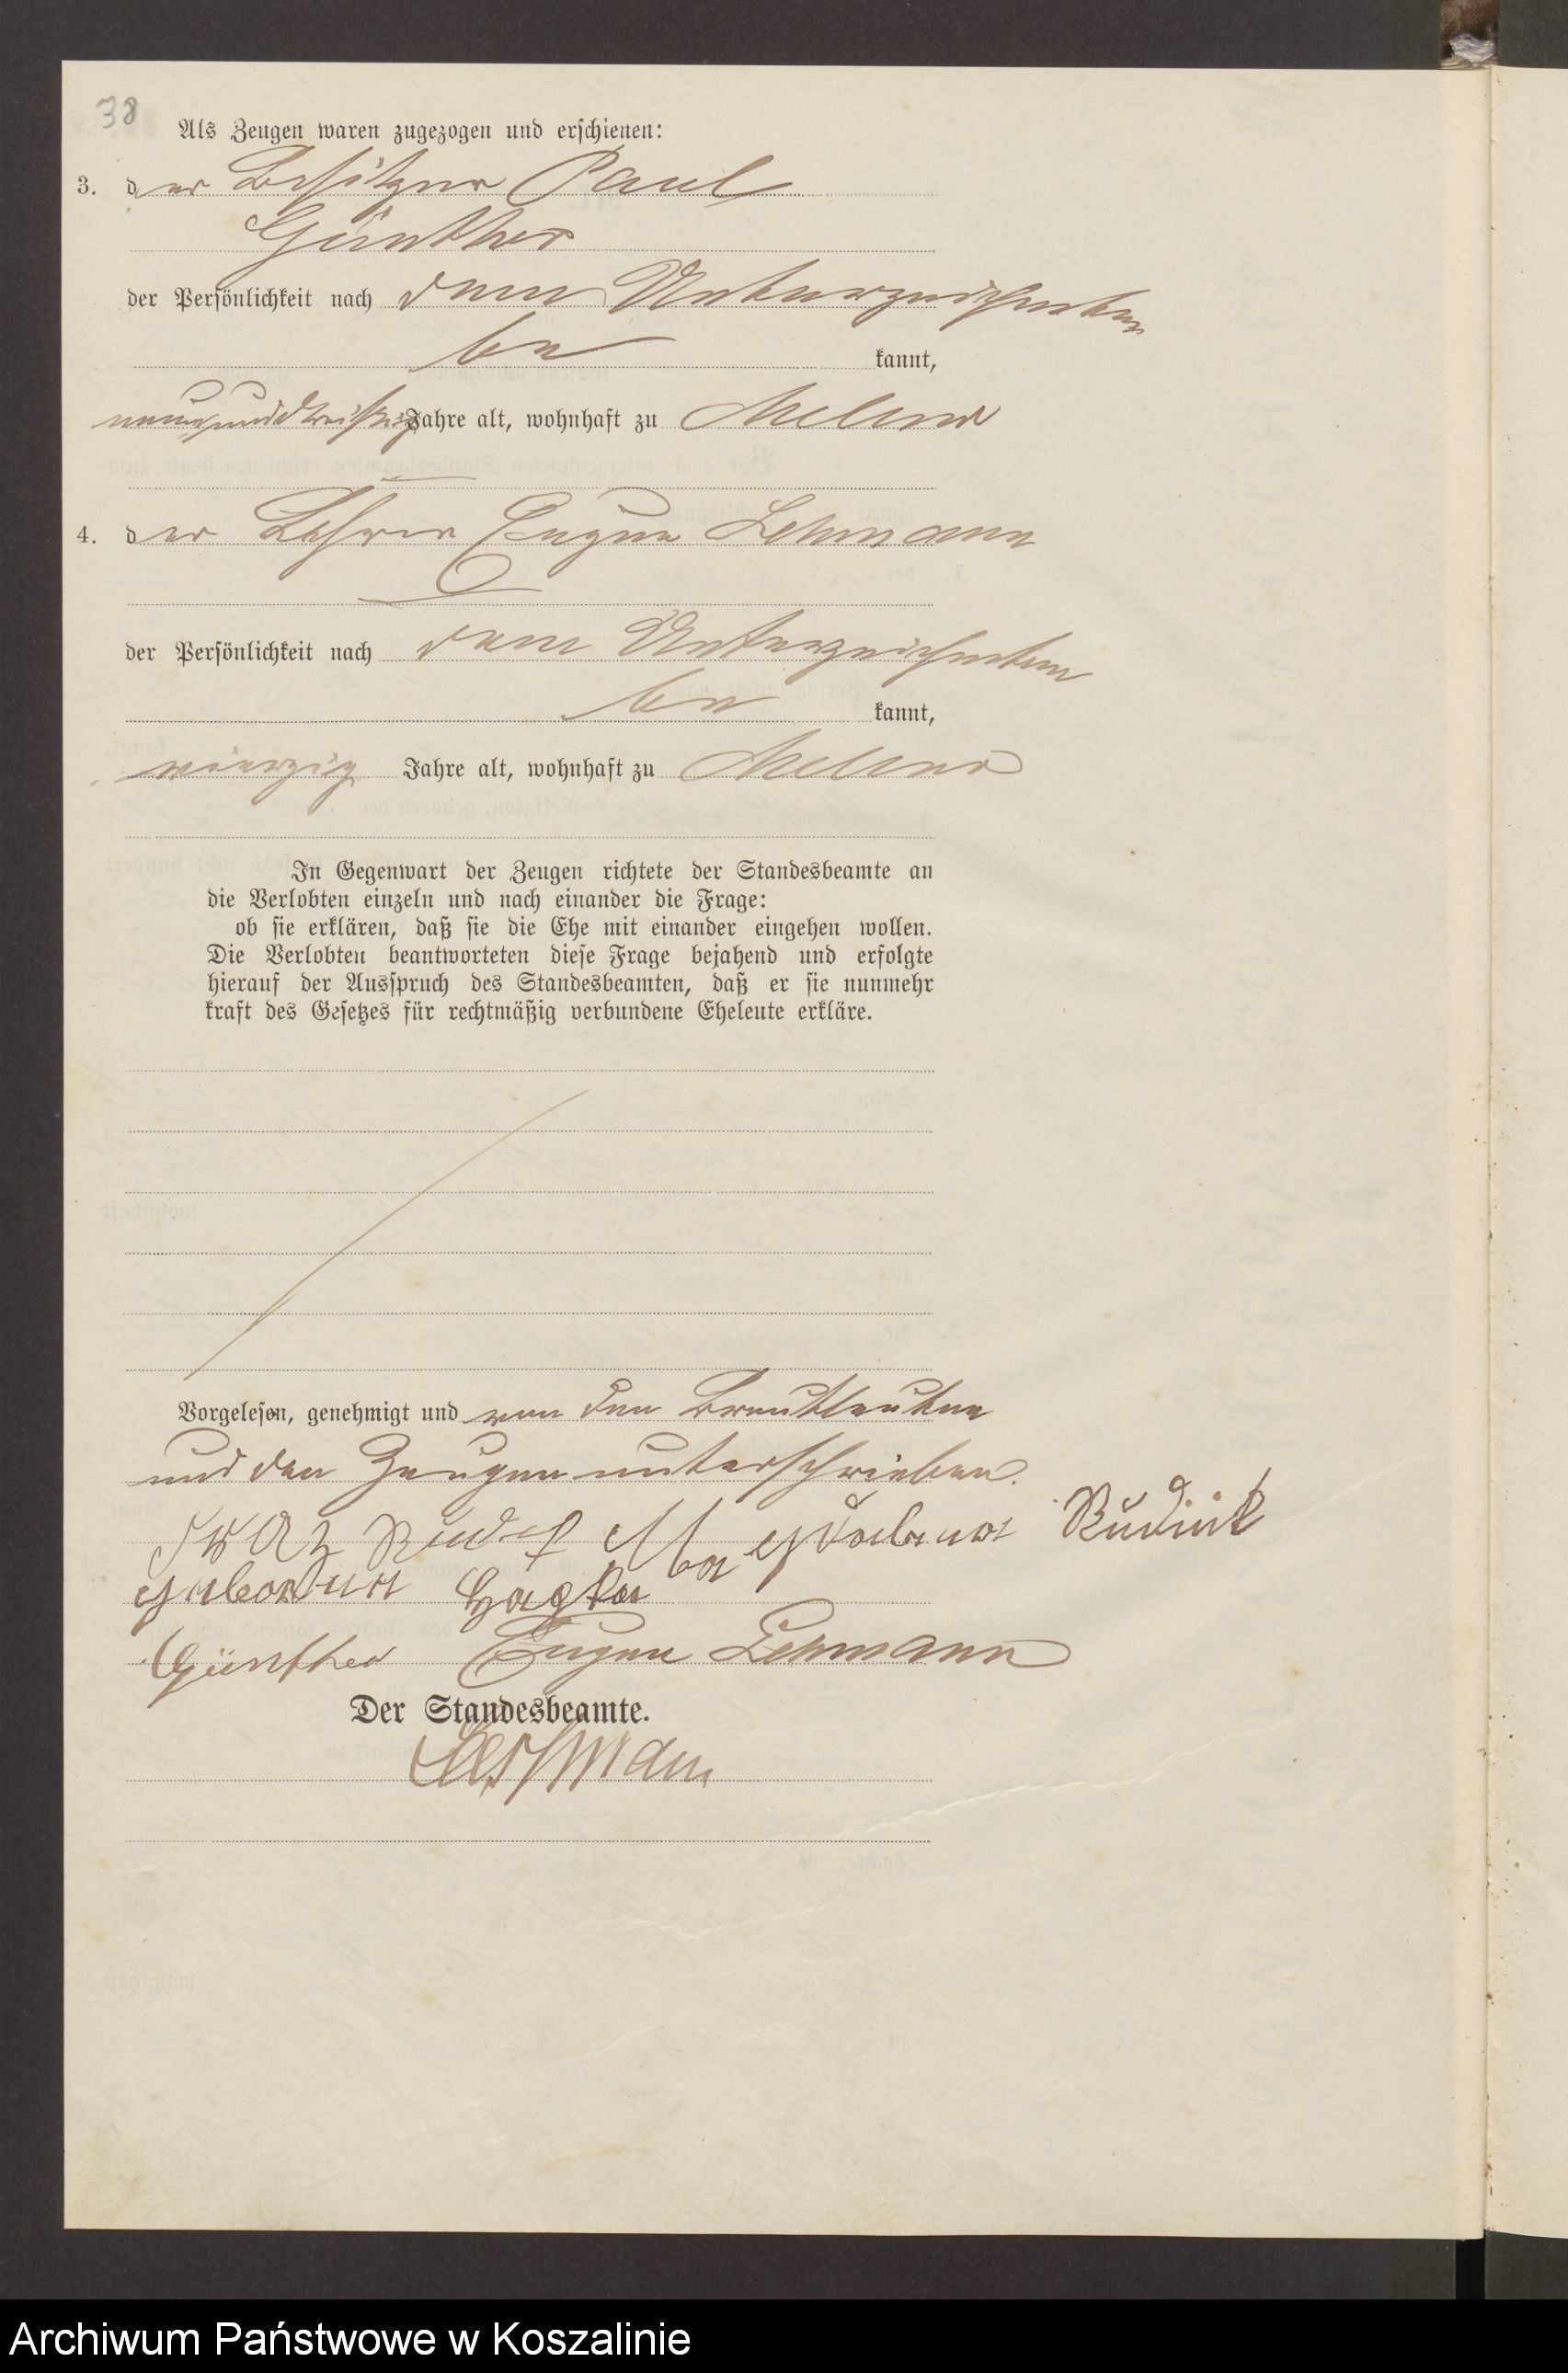 38
Als Zeugen waren zugezogen und erschienen:
3. der Besitzer Paul
Günther
der Persönlichkeit nach dem Unterzeichneten
be kannt,
neununddreißig Jahre alt, wohnhaft zu
4. der Lehrer Eugen Lehmann
der Persönlichkeit nach dem Unterzeichneten
be kannt,
vierzig Jahre alt, wohnhaft zu
In Gegenwart der Zeugen richtete der Standesbeamte an
die Verlobten einzeln und nach einander die Frage:
ob sie erklären, daß sie die Ehe mit einander eingehen wollen.
Die Verlobten beantworteten diese Frage bejahend und erfolgte
hierauf der Ausspruch des Standesbeamten, daß er sie nunmehr
kraft des Gesetzes für rechtmäßig verbundene Eheleute erkläre.
Vorgelesen, genehmigt und von den Brautleuten
und den Zeugen unterschrieben.
geborene
Günther Eugen Lehmann
Der Standesbeamte.
Archiwum Państwowe w Koszalinie